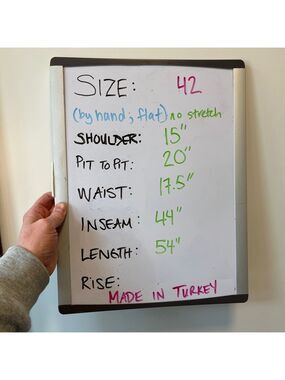 SIZE: 42
(by hand; flat) no stretch
SHOULDER: 15"
PIT TO PIT: 20"
WAIST: 17.5"
INSEAM: 44"
LENGTH: 54"
RISE:
MADE IN TURKEY